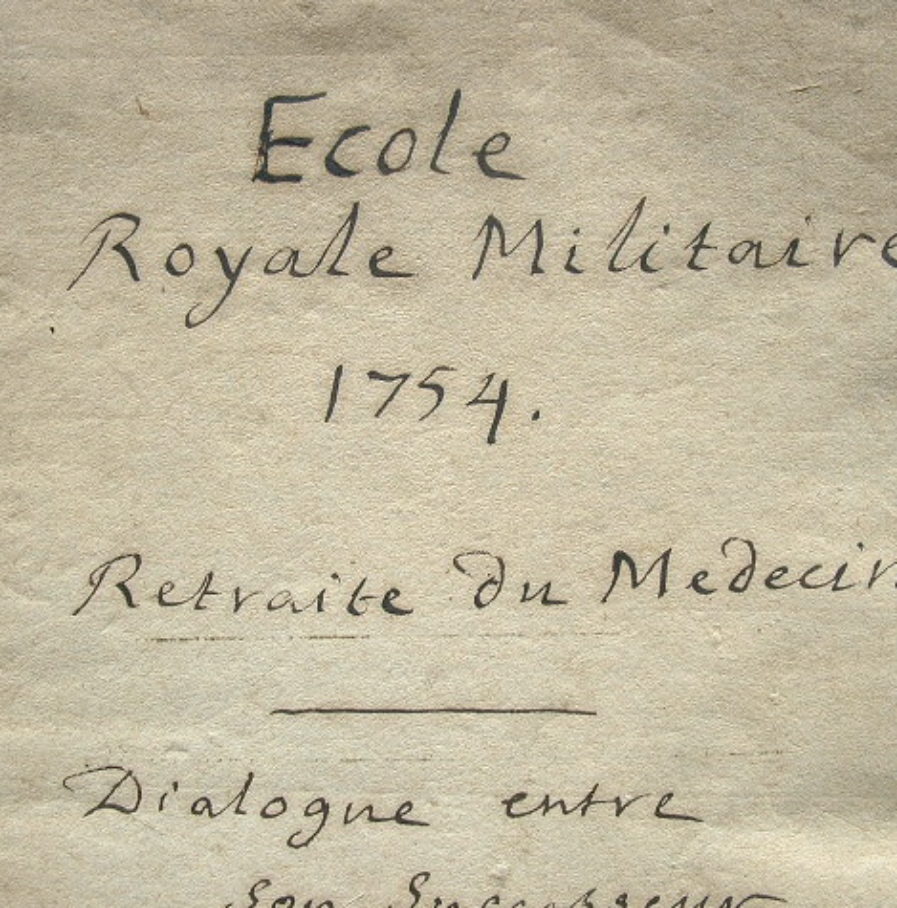 Ecole
Royale Militaire
1754.
Retraite du Medecin
Dialogue entre
son Successeur